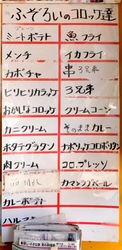 ふぞろいのコロッケ達
ミートポテト
魚フライ
メンチ
イカフライ
カボチャ
串3兄弟
ピリピリカラッケ
3兄弟
おかしなコロッケ
クリームコーン
カニクリーム
そのままカレー
ホタテグラタン
肉クリーム
コロ.プレッソ
カマンクリベール
カレーポテト